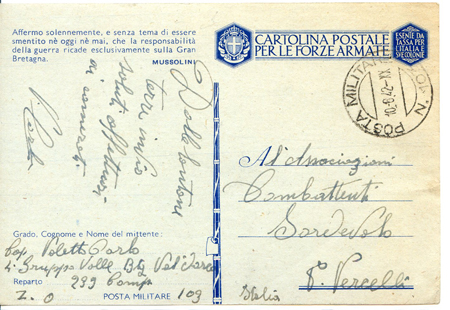 Affermo solennemente, e senza tema di essere
smentito nè oggi nè mai, che la responsabilità
della guerra ricade esclusivamente sulla Gran
Bretagna.
MUSSOLINI
Dalla lontana
terra invio
saluti affettuosi
ai camerati
V. Carlo
Grado, Cognome e Nome del mittente:
Cap. Carlo
4° Gruppo Valle Btg Val d'Arco
Reparto 239 Comp.
Z. O POSTA MILITARE 109
CARTOLINA POSTALE
PER LE FORZE ARMATE
ESENTE DA
TASSA PER
L'ITALIA E
SUE COLONIE
POSTA MILITARE N. 109
10.8.42-XX
All'Associazioni
Combattenti
Sordevolo
P. Vercelli
Italia